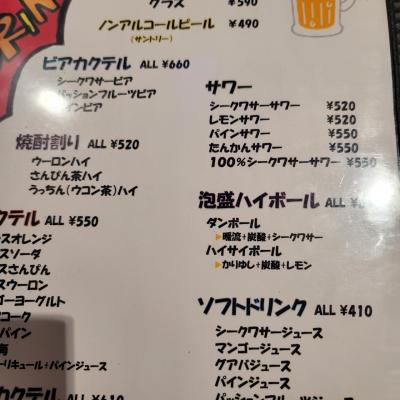 グラス ¥590
ノンアルコールビール ¥490
(サントリー)
ビアカクテル ALL ¥660
シークワサービア
パッションフルーツビア
インビア
焼酎割り ALL ¥520
ウーロンハイ
さんぴん茶ハイ
うっちん(ウコン茶)ハイ
クテル ALL ¥550
スオレンジ
スソーダ
スさんぴん
スウーロン
ゴーヨーグルト
コーク
パイン
海
ーリキュール+パインジュース
カクテル ALL ¥610
サワー
シークワサーサワー ¥520
レモンサワー ¥520
パインサワー ¥550
たんかんサワー ¥550
100%シークワサーサワー ¥550
泡盛ハイボール ALL
ダンボール
▶暖流+炭酸+シークワサー
ハイサイボール
▶かりゆし+炭酸+レモン
ソフトドリンク ALL ¥410
シークワサージュース
マンゴージュース
グアバジュース
パインジュース
パッションフルーツジュース